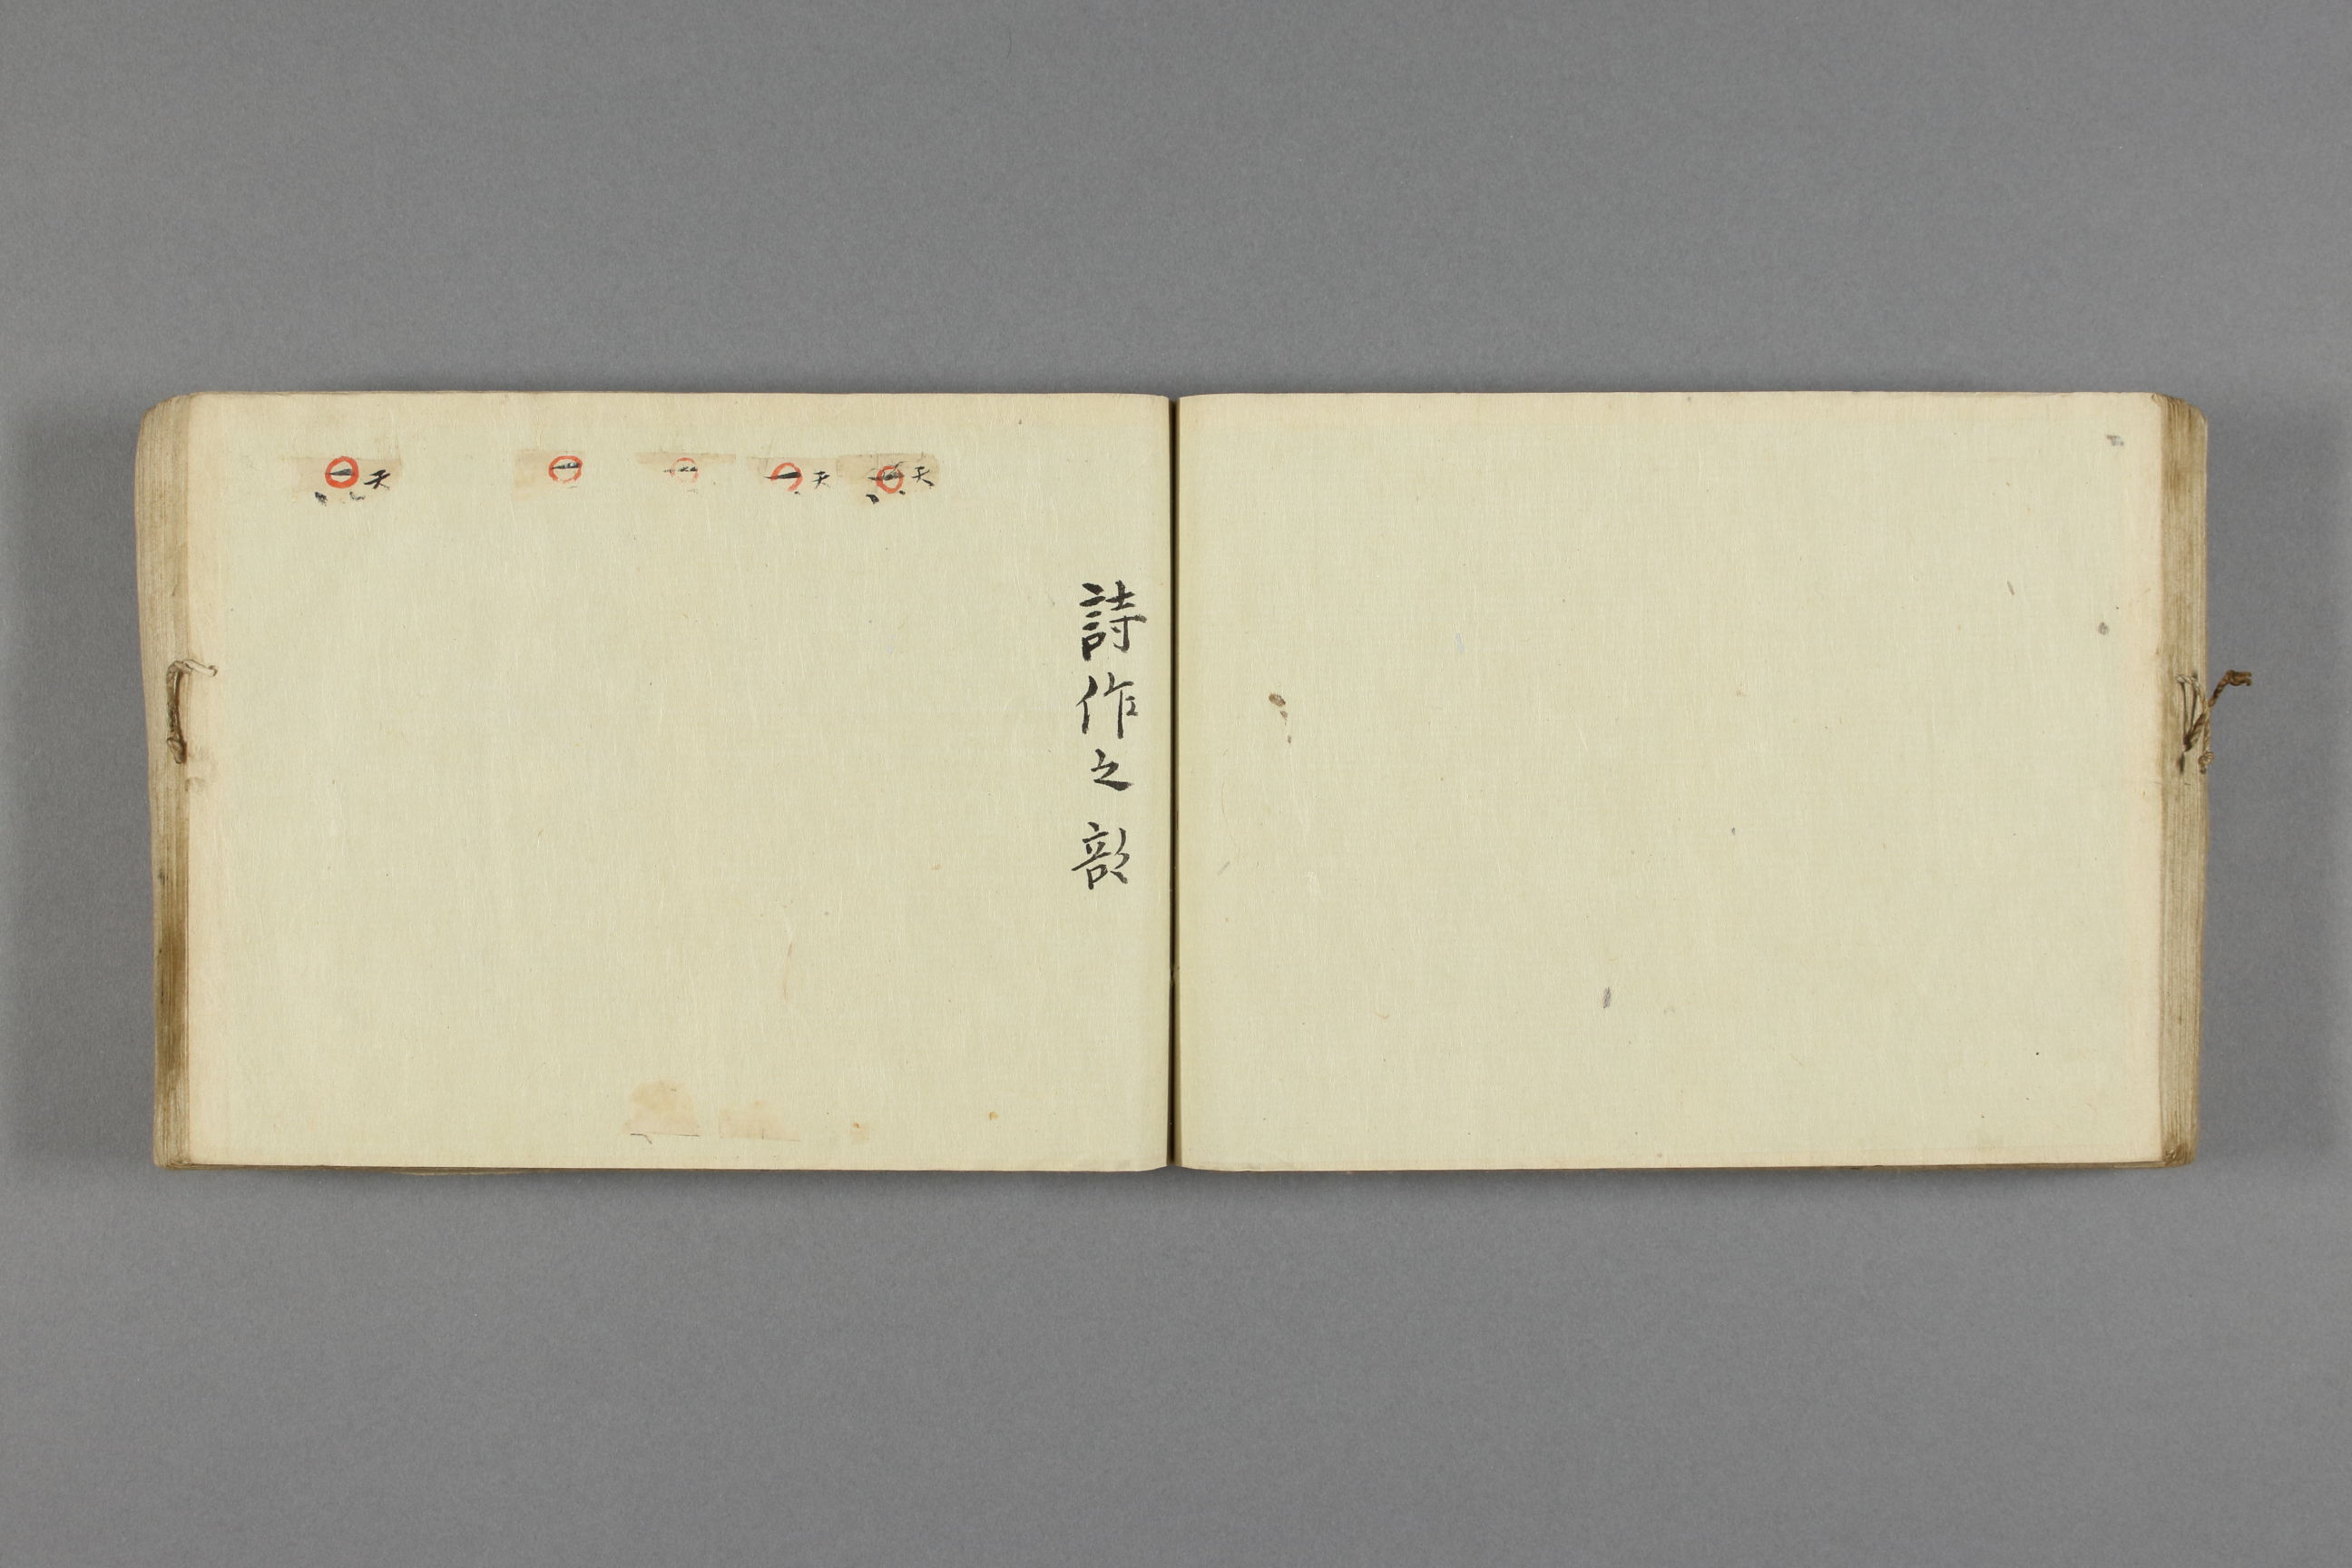 詩作之部
天
天
天